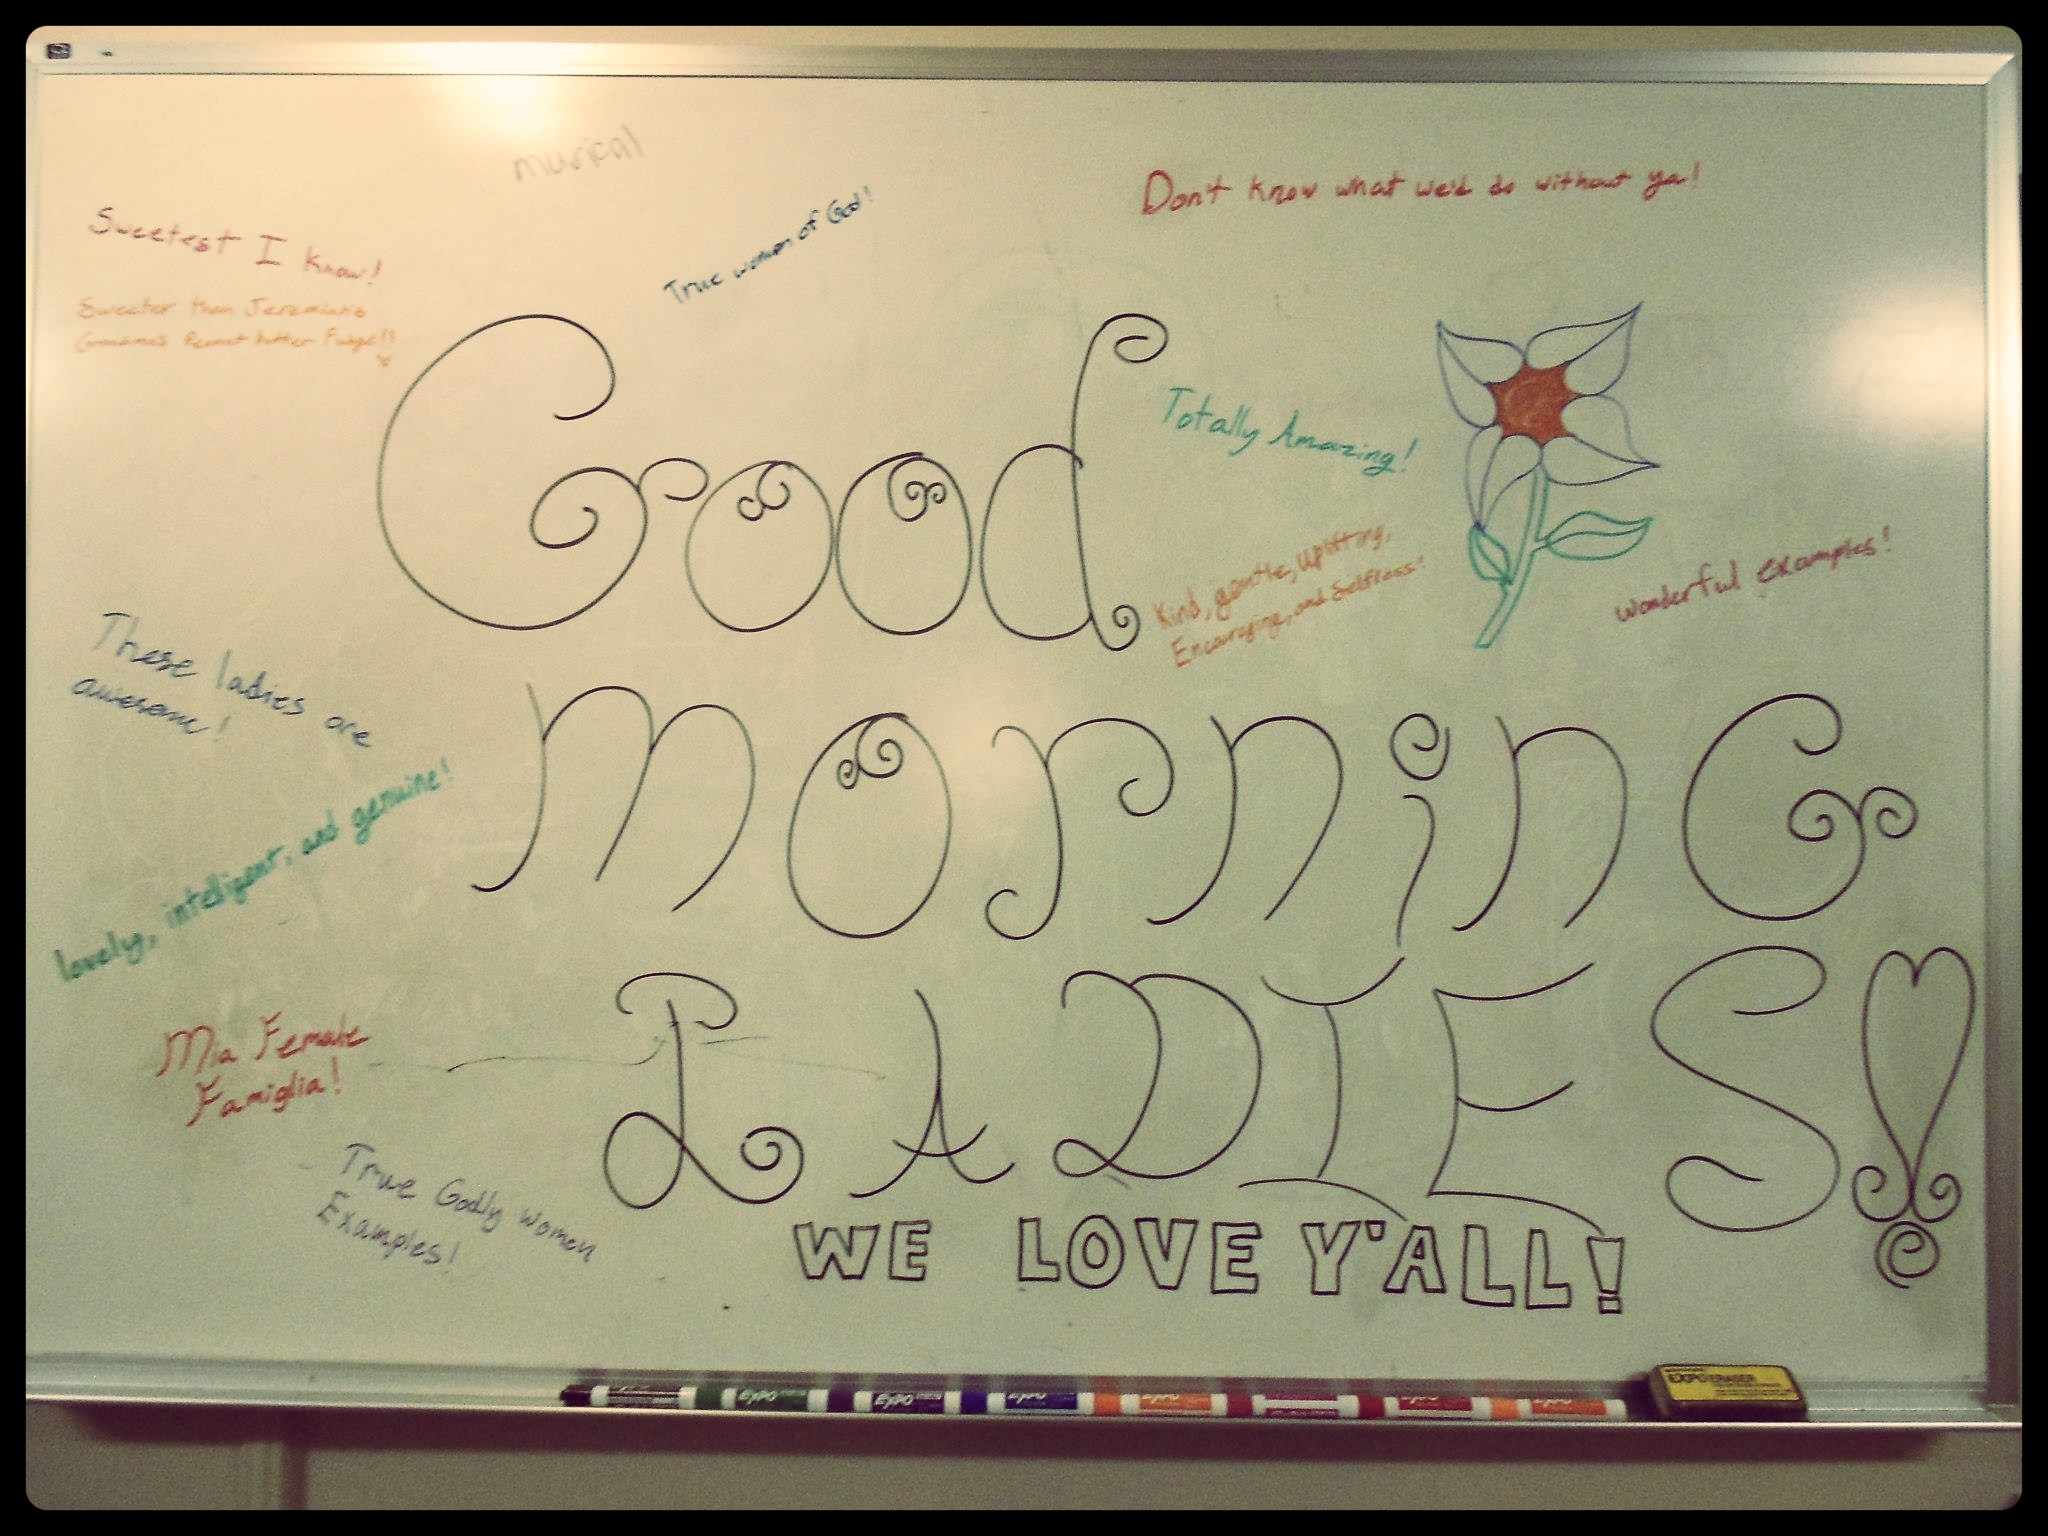 musical
Don't know what we'd do without ya!
True women of God!
Sweetest I know!
Sweeter than Jeremiah's
Grandma's Peanut butter Fudge!!
Good
Totally Amazing!
Kind, gentle, Uplifting,
Encouraging, and Selfless!
wonderful examples!
These ladies are
awesome!
MORNinG
lovely, intelligent, and genuine!
LADIES!
Mia Female
Famiglia!
True Godly women
Examples!
WE LOVE Y'ALL!
EXPO
EXPO
EXPO
EXPO ERASER